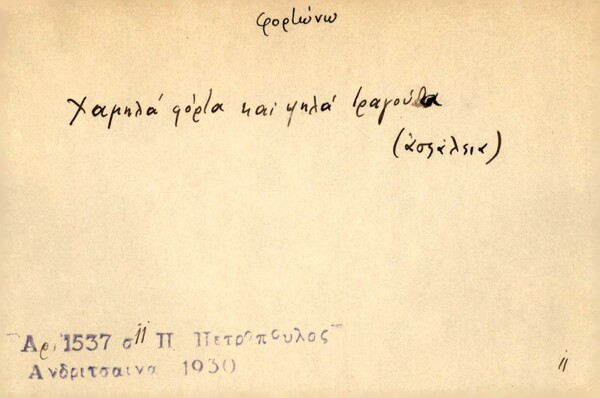 φορτώνω
Χαμηλά φόρτα και ψηλά τραγούδα
(ἀσφάλεια)
Αρ. 1537 σ 11 Π Πετροπουλος
Ανδριτσαινα 1930
11